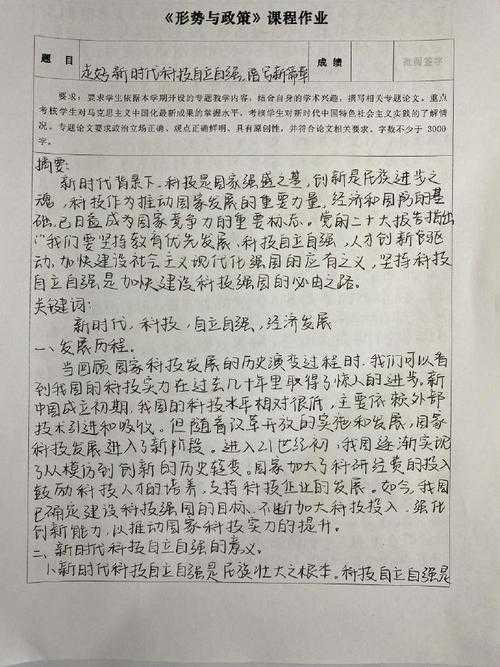 《形势与政策》课程作业
题 目 走好新时代科技自立自强,谱写新篇章 成 绩 批阅签字
要求:要求学生依据本学期开设的专题教学内容,结合自身的学术兴趣,撰写相关专题论文。重点
考核学生对马克思主义中国化最新成果的掌握水平,考核学生对新时代中国特色社会主义实践的了解情
况。专题论文要求政治立场正确、观点正确鲜明、具有原创性,并符合论文相关要求。字数不少于 3000
字。
摘要:
新时代背景下,科技是国家强盛之基,创新是民族进步之
魂,科技作为推动国家发展的重要力量,经济和国防的基
础,已日益成为国家竞争力的重要标志。党的二十大报告指出
“我们要坚持教育优先发展、科技自立自强、人才创新驱
动,加快建设社会主义现代化强国的应有之义,坚持科技
自立自强是加快建设科技强国的必由之路。
关键词:
新时代,科技,自立自强,经济发展
一、发展历程。
当回顾国家科技发展的历史演变过程时,我们可以看
到我国的科技实力在过去几十年里取得了惊人的进步。新
中国成立初期,我国的科技水平相对很低,主要依赖外部
技术引进和吸收。但随着改革开放的实施和发展,国家
科技发展进入了新阶段。进入21世纪初,我国逐渐实现
了从模仿到创新的历史转变。国家加大了科研经费的投入
鼓励科技人才的培养,支持科技企业的发展。如今,我国
已确定建设科技强国的目标,不断加大科技投入,强化
创新能力,以推动国家科技实力的提升。
二、新时代科技自立自强的意义。
1、新时代科技自立自强是民族壮大之根本。科技自立自强是